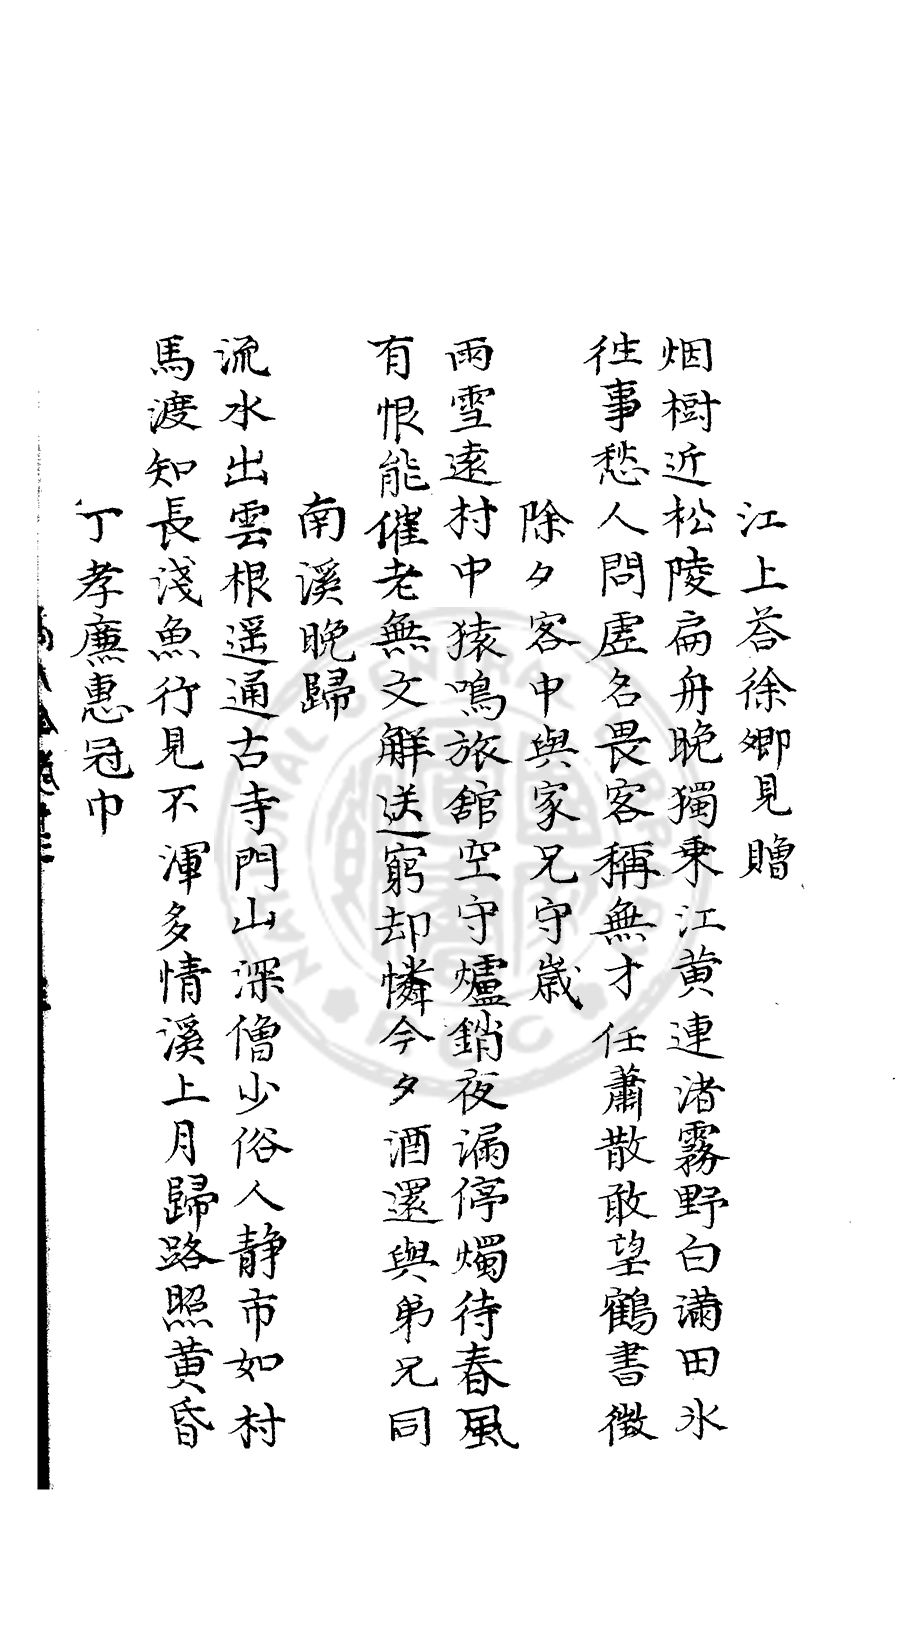 江上荅徐卿見贈
烟樹近松陵扁舟晚獨乗江黄連渚霧野白滿田氷
徃事愁人問虗名畏客稱無才任蕭散敢望鶴書徴
除夕客中與家兄守歳
雨雪逺村中猿鳴旅舘空守爐銷夜漏停燭待春風
有恨能催老無文觧送窮却憐今夕酒還與弟兄同
南溪晚歸
流水出雲根遥通古寺門山深僧少俗人静市如村
馬渡知長淺魚行見不渾多情溪上月歸路照黄昏
丁孝廉惠冠巾
NATIONAL CENTRAL LIBRARY
R.O.C